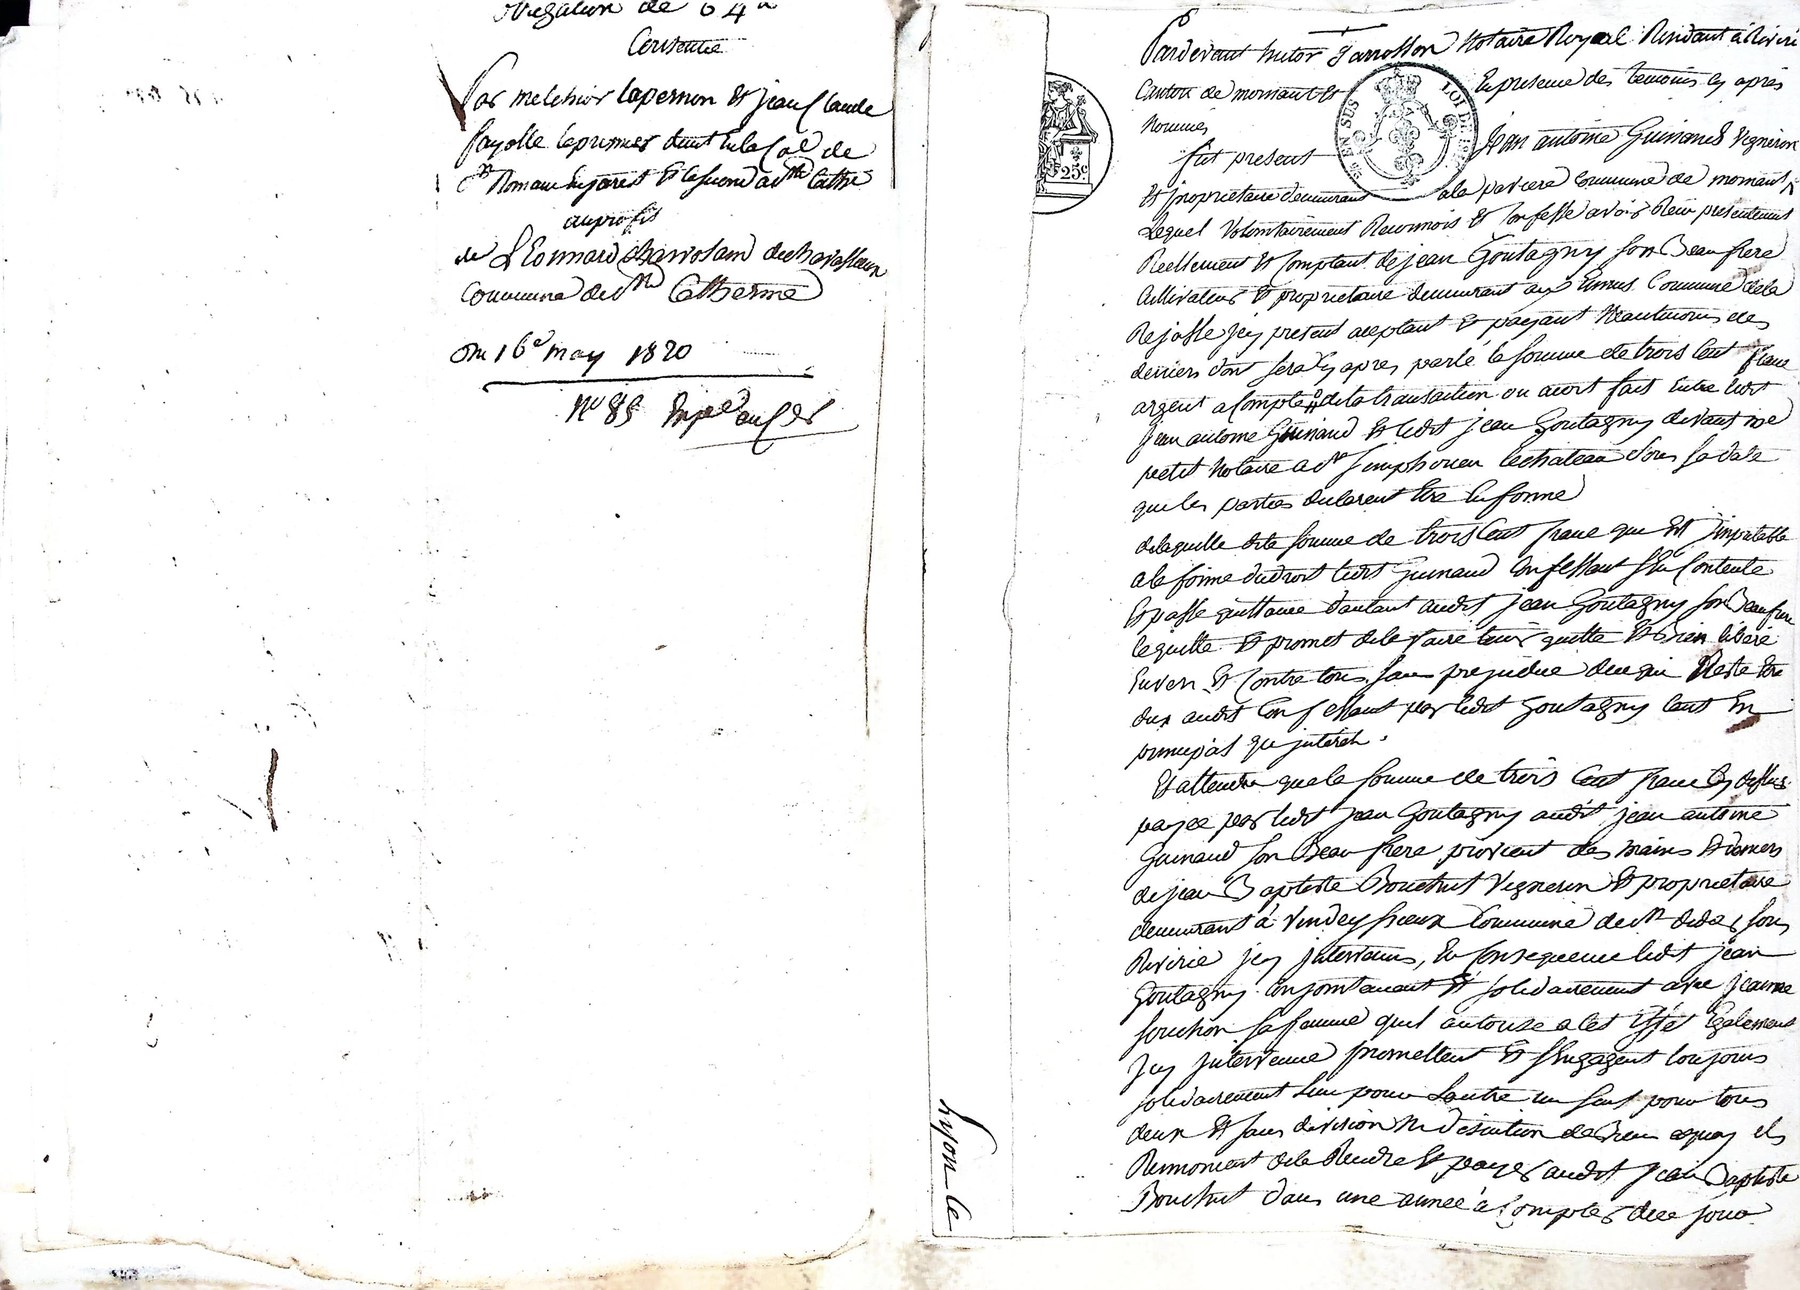 obligation de 64#
Consentie
Par melchior lapernon Et jean Claude
fayolle le premier de
St Romain En jarest Et le second a Ste Cathe
au profit
de Leonnard
Commune de Ste Catherine
Du 16e may 1820
No 85
Lyon le
Pardevant Notaire Royal Residant à Riviri
Canton de mornant Et En presence des temoins Cy après
Nommés
EN SUS LOI DE
25c
fut present Jean antoine Guinand Vigneron
Et proprietaire demeurant a la Commune de mornant
Lequel Volontairement Reconnois Et Confesse avoir Reçu presentement
Reellement Et Comptant de jean Goutagny son Beau frere
Cultivateur Et proprietaire demeurant aux Commune de la
Rejasse jcy present aceptant Et payant des
deniers dont sera Cy apres parlé la somme de trois Cent franc
argent a Compte de la transaction ou acort fait Entre ledit
jean antoine Guinand Et ledit jean Goutagny devant me
petit Notaire a St simphorien le chateau sous sa date
que les parties declarent Etre En forme
de laquelle dite somme de trois Cent franc que Est jmputable
a la forme du droit ledit Guinand Confessant s'En Contente
Et passe quittance d'autant audit jean Goutagny son Beau frere
le quitte Et promet de le faire tenir quitte Et Bien liberé
Envers Et Contre tous sans prejudice de ce qui Reste Etre
du audit Confessant par ledit Goutagny tant En
principal qu jnterets.
Et attendu que la somme de trois Cent franc Cy dessus
payee par ledit jean Goutagny audit jean antoine
Guinand son Beau frere provient des mains Et deniers
de jean Baptiste Bouchut Vigneron Et proprietaire
demeurant à Commune de St didier sous
Rivirie jcy jntervenus, En Consequence ledit jean
Goutagny Conjointement Et solidairement avec jeanne
souchon sa famme quil autorise a Cet Effet Egalement
jcy jntervenue promettent Et s'Engagent toujours
solidairement l'un pour Lautre un seul pour tous
deux Et sans division Ni discution de Biens a quoy ils
Renoncent de la Rendre Et payer audit jean Baptiste
Bouchut dans une année à Compter de ce jour